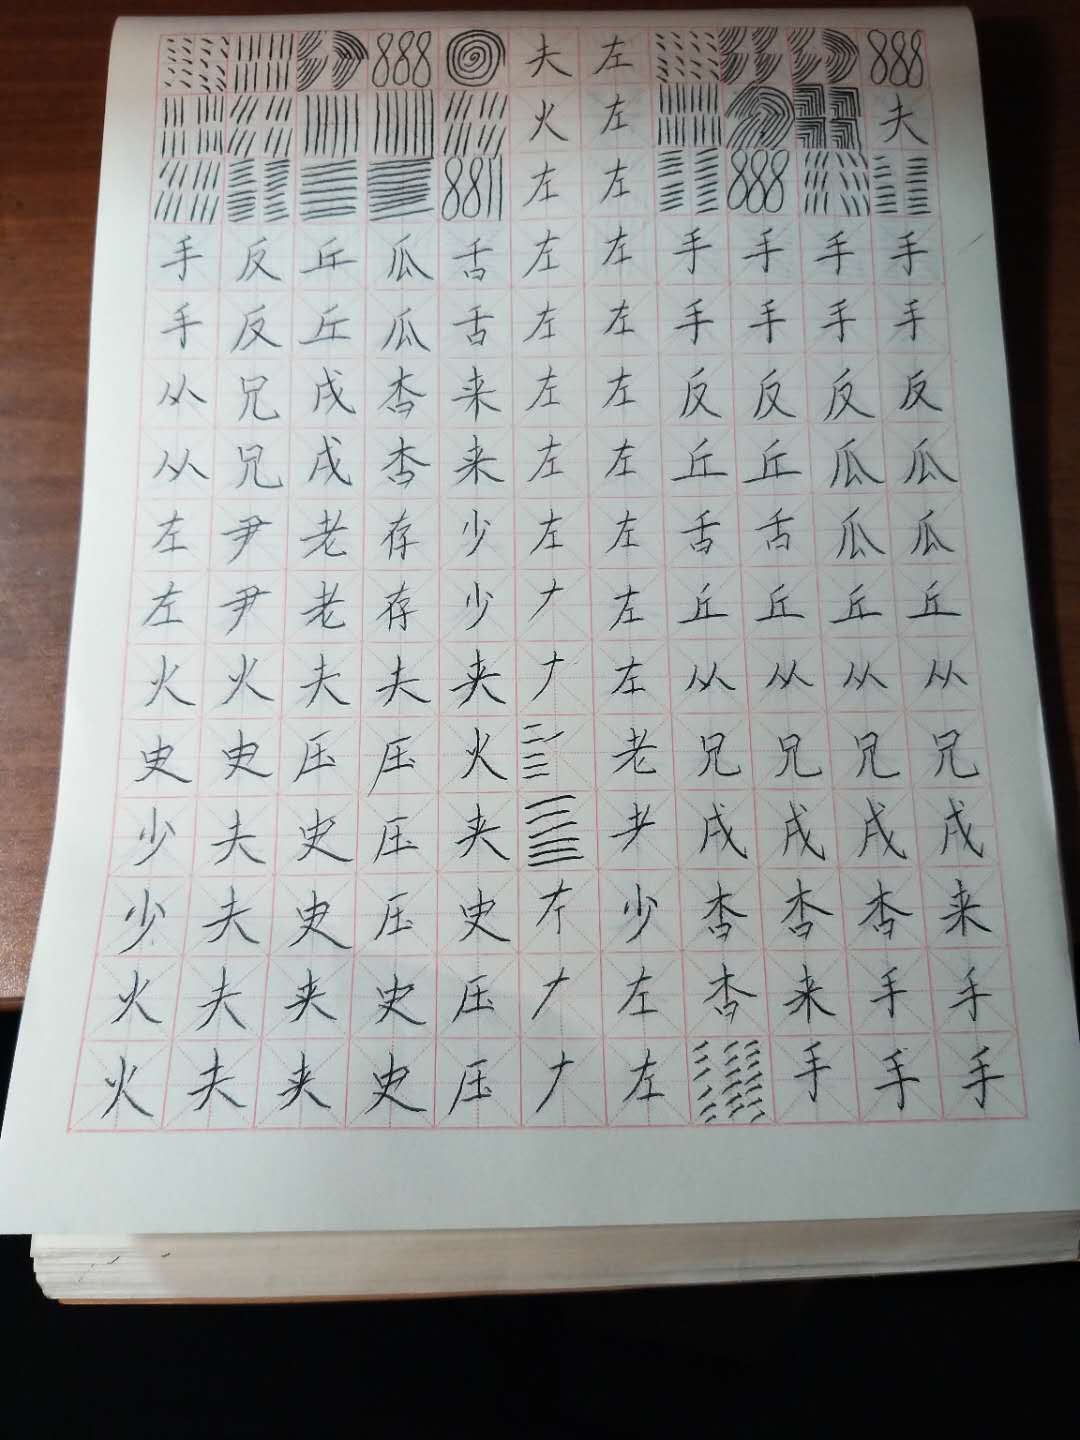 888 夫 左 888
火 左 夫
88 左 左 888
手 反 丘 瓜 舌 左 左 手 手 手 手
手 反 丘 瓜 舌 左 左 手 手 手 手
从 兄 戌 杏 来 左 左 反 反 反 反
从 兄 戌 杏 来 左 左 丘 丘 瓜 瓜
左 尹 老 存 少 左 左 舌 舌 瓜 瓜
左 尹 老 存 少 𠂇 左 丘 丘 丘 丘
火 火 夫 夫 夹 𠂇 左 从 从 从 从
史 史 压 压 火 老 兄 兄 兄 兄
少 夫 史 压 夹 耂 戌 戌 戌 戌
少 夫 史 压 史 少 杏 杏 杏 来
火 夫 夹 史 压 𠂇 左 杏 来 手 手
火 夫 夹 史 压 𠂇 左 手 手 手